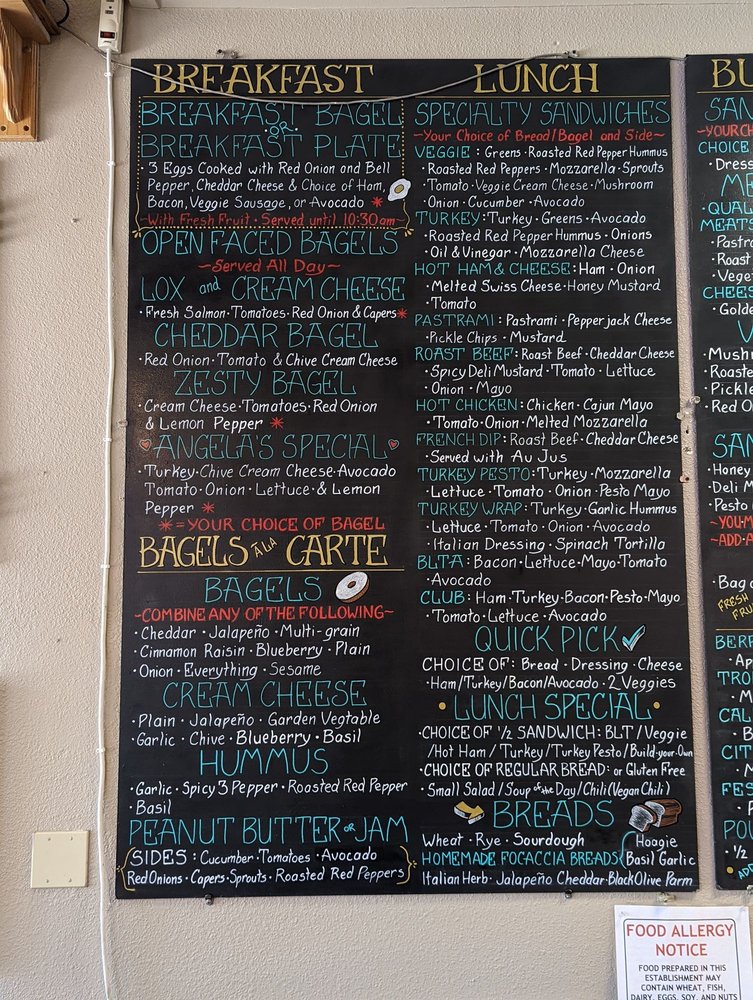 BREAKFAST
BREAKFAST BAGEL
OR
BREAKFAST PLATE
• 3 Eggs Cooked with Red Onion and Bell
Pepper, Cheddar Cheese & Choice of Ham,
Bacon, Veggie Sausage, or Avocado *
- With Fresh Fruit • Served until 10:30am
OPEN FACED BAGELS
~Served All Day~
LOX and CREAM CHEESE
• Fresh Salmon • Tomatoes • Red Onion & Capers *
CHEDDAR BAGEL
• Red Onion • Tomato & Chive Cream Cheese
ZESTY BAGEL
• Cream Cheese • Tomatoes • Red Onion
& Lemon Pepper *
♡ ANGELA'S SPECIAL ♡
• Turkey • Chive Cream Cheese • Avocado
Tomato • Onion • Lettuce • & Lemon
Pepper *
* = YOUR CHOICE OF BAGEL
BAGELS À LA CARTE
BAGELS
~COMBINE ANY OF THE FOLLOWING~
• Cheddar • Jalapeño • Multi-grain
• Cinnamon Raisin • Blueberry • Plain
• Onion • Everything • Sesame
CREAM CHEESE
• Plain • Jalapeño • Garden Vegtable
• Garlic • Chive • Blueberry • Basil
HUMMUS
• Garlic • Spicy 3 Pepper • Roasted Red Pepper
• Basil
PEANUT BUTTER or JAM
SIDES: Cucumber • Tomatoes • Avocado
Red Onions • Capers • Sprouts • Roasted Red Peppers
LUNCH
SPECIALTY SANDWICHES
~Your Choice of Bread/Bagel and Side~
VEGGIE: Greens • Roasted Red Pepper Hummus
• Roasted Red Peppers • Mozzarella • Sprouts
• Tomato • Veggie Cream Cheese • Mushroom
Onion • Cucumber • Avocado
TURKEY: Turkey • Greens • Avocado
• Roasted Red Pepper Hummus • Onions
• Oil & Vinegar • Mozzarella Cheese
HOT HAM & CHEESE: Ham • Onion
• Melted Swiss Cheese • Honey Mustard
• Tomato
PASTRAMI: Pastrami • Pepperjack Cheese
Pickle Chips • Mustard
ROAST BEEF: Roast Beef • Cheddar Cheese
• Spicy Deli Mustard • Tomato • Lettuce
• Onion • Mayo
HOT CHICKEN: Chicken • Cajun Mayo
• Tomato • Onion • Melted Mozzarella
FRENCH DIP: Roast Beef • Cheddar Cheese
• Served with Au Jus
TURKEY PESTO: Turkey • Mozzarella
Lettuce • Tomato • Onion • Pesto Mayo
TURKEY WRAP: Turkey • Garlic Hummus
• Lettuce • Tomato • Onion • Avocado
• Italian Dressing • Spinach Tortilla
BLTA: Bacon • Lettuce • Mayo • Tomato
• Avocado
CLUB: Ham • Turkey • Bacon • Pesto • Mayo
• Tomato • Lettuce • Avocado
QUICK PICK ✓
CHOICE OF: Bread • Dressing • Cheese
• Ham/Turkey/Bacon/Avocado • 2 Veggies
• LUNCH SPECIAL •
• CHOICE OF 1/2 SANDWICH: BLT/Veggie
/Hot Ham/Turkey/Turkey Pesto/Build-your-Own
• CHOICE OF REGULAR BREAD: or Gluten Free
• Small Salad/Soup of the Day/Chili (Vegan Chili)
BREADS
Wheat • Rye • Sourdough
Hoagie
HOMEMADE FOCACCIA BREADS
Basil Garlic
Italian Herb • Jalapeño Cheddar • Black Olive Parm
FOOD ALLERGY
NOTICE
FOOD PREPARED IN THIS
ESTABLISHMENT MAY
CONTAIN WHEAT, FISH,
DAIRY, EGGS, SOY, AND NUTS